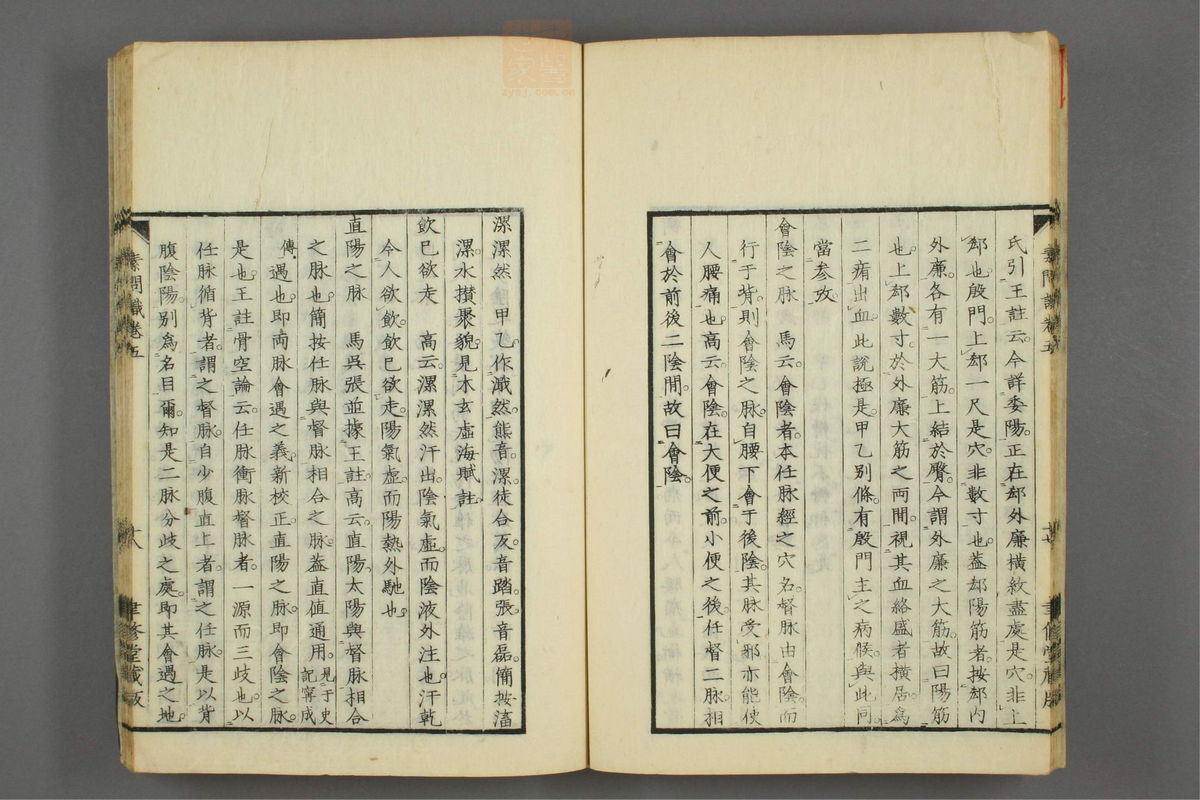 氏引王註云今詳委陽正在郄外廉橫紋盡處是穴非上
郄也殷門上郄一尺是穴非數寸也葢郄陽筋者按郄內
外廉各有一大筋上結於臀今謂外廉之大筋故曰陽筋
也上郄數寸於外廉大筋之両間視其血絡盛者橫居爲
二痏出血此說極是甲乙別條有殷門主之病候與此同
當參攷
會陰之脉　馬云會陰者本任脉經之穴名督脉由會陰而
行于背則會陰之脉自腰下會于後陰其脉受邪亦能使
人腰痛也高云會陰在大便之前小便之後任督二脉相
會於前後二陰間故曰會陰
素問識卷五　十八　聿修堂藏版
漯漯然　甲乙作濈然熊音漯徒合反音踏張音磊簡按濇
漯水攅聚貌見木玄虛海賦註
飮已欲走　高云漯漯然汗出陰氣虛而陰液外注也汗乾
今人欲飮飮已欲走陽氣虛而陽熱外馳也
直陽之脉　馬吳張並據王註高云直陽太陽與督脉相合
之脉也簡按任脉與督脉相合之脉葢直值通用見于史記寧成
傳遇也即両脉會遇之義新校正直陽之脉即會陰之脉
是也王註骨空論云任脉衝脉督脉者一源而三歧也以
任脉循背者謂之督脉自少腹直上者謂之任脉是以背
腹陰陽別爲名目爾知是二脉分歧之處即其會遇之地